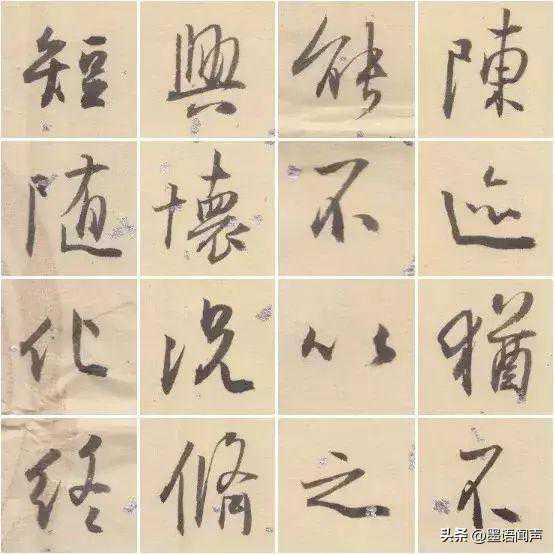 陳迹猶不
能不以之
興懷况脩
短随化終
头条 @墨语闻声